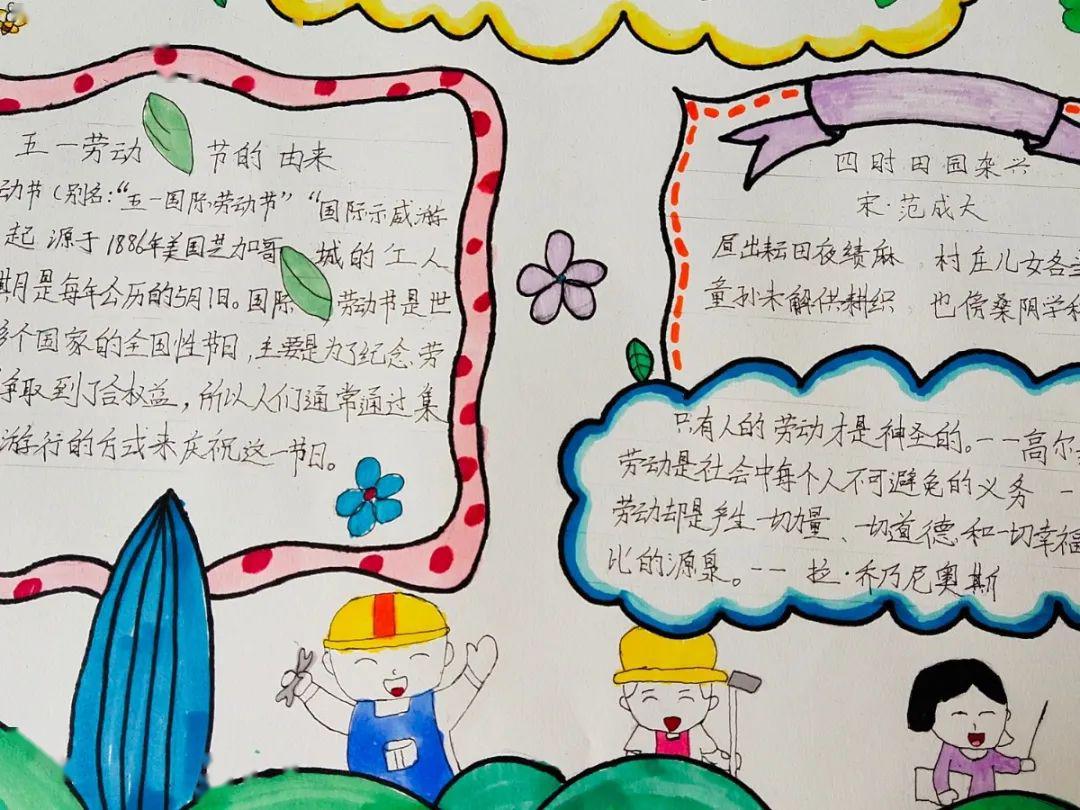 五一劳动节的由来
动节(别名:“五一国际劳动节”“国际示威游
起源于1886年美国芝加哥 城的工人
期是每年公历的5月1日。国际劳动节是世
多个国家的全国性节日,主要是为了纪念劳
争取到了合权益,所以人们通常通过集
游行的方式来庆祝这一节日。
四时田园杂兴
宋·范成大
昼出耘田夜绩麻 村庄儿女各
童孙未解供耕织 也傍桑阴学
只有人的劳动才是神圣的。——高尔
劳动是社会中每个人不可避免的义务 一
劳动却是产生一切力量、一切道德和一切幸福
比的源泉。—— 拉·乔乃尼奥斯